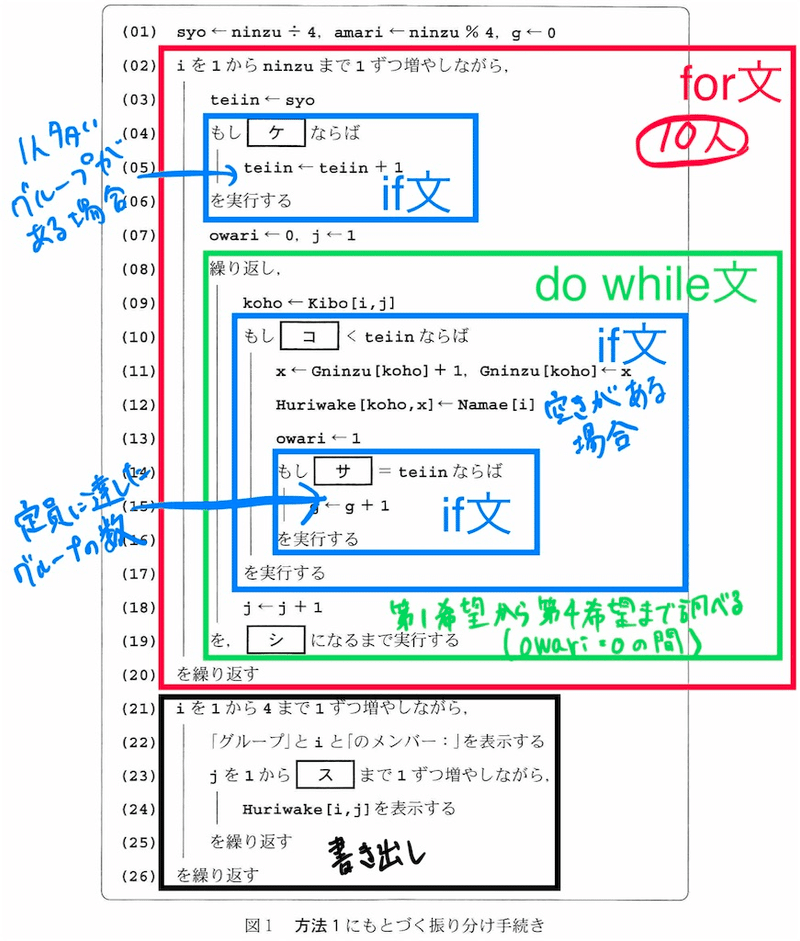 (01) syo←ninzu÷4, amari←ninzu%4, g←0
(02) iを1からninzuまで1ずつ増やしながら,
for文
(03) teiin←syo
10人
(04) もし ケ ならば
1人多い
グループが
ある場合
(05) teiin←teiin+1
if文
(06) を実行する
(07) owari←0, j←1
(08) 繰り返し,
do while文
(09) koho←Kibo[i,j]
(10) もし コ <teiinならば
if文
(11) x←Gninzu[koho]+1, Gninzu[koho]←x
(12) Huriwake[koho,x]←Namae[i]
空きがある
場合
(13) owari←1
(14) もし サ =teiinならば
定員に達した
グループの数
(15) g←g+1
if文
(16) を実行する
(17) を実行する
(18) j←j+1
第1希望から第4希望まで調べる
(owari=0の間)
(19) を, シ になるまで実行する
(20) を繰り返す
(21) iを1から4まで1ずつ増やしながら,
(22) 「グループ」とiと「のメンバー:」を表示する
(23) jを1から ス まで1ずつ増やしながら,
(24) Huriwake[i,j]を表示する
(25) を繰り返す
書き出し
(26) を繰り返す
図1 方法1にもとづく振り分け手続き